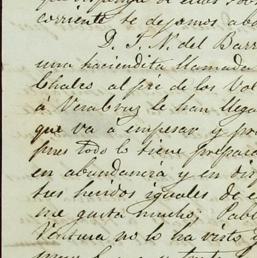 corriente te dejamos abo
D. J. N. del Barr
una haciendita llamada
Chalco, al pié de los Vol
á Veracruz le han llega
que vá á empesar y pro
pues todo lo tiene prepara
en abundancia y en dis
tes hundos iguales de e
me gusta mucho, Pabl
Ventura no lo ha visto y